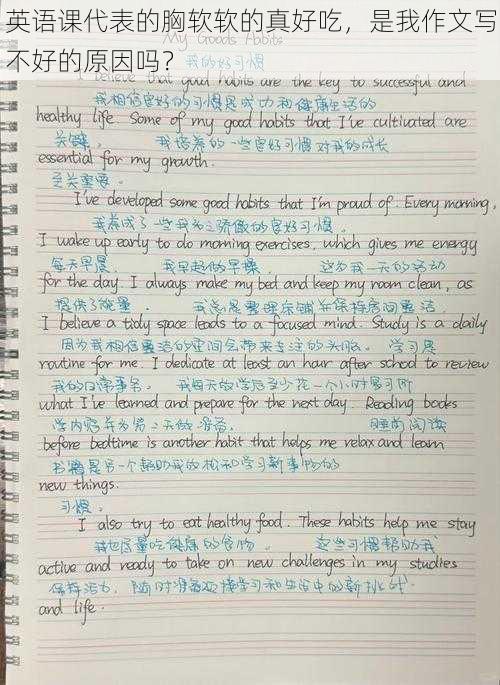 英语课代表的胸软软的真好吃，是我作文写
不好的原因吗？
My Goods Habits
我的好习惯
I believe that good habits are the key to successful and
我相信良好的习惯是成功和健康生活的
healthy life. Some of my good habits that I've cultivated are
关键。 我培养的一些良好习惯对我的成长
essential for my growth.
至关重要。
I've developed some good habits that I'm proud of. Every morning,
我养成了一些我为之骄傲的良好习惯。
I wake up early to do morning exercises, which gives me energy
每天早晨， 我早起做早操， 这为我一天的活动
for the day. I always make my bed and keep my room clean, as
提供了能量。 我总是整理床铺并保持房间整洁
I believe a tidy space leads to a focused mind. Study is a daily
因为我相信整洁的空间会带来专注的头脑。 学习是
routine for me. I dedicate at least an hour after school to review
我的日常事务。 我每天放学后至少花一个小时复习所
what I've learned and prepare for the next day. Reading books
学内容并为第二天做准备。 睡前阅读
before bedtime is another habit that helps me relax and learn
书籍是另一个帮助我放松和学习新事物的
new things.
习惯。
I also try to eat healthy food. These habits help me stay
我也尽量吃健康的食物。 这些习惯帮助我
active and ready to take on new challenges in my studies
保持活力， 随时准备迎接学习和生活中的新挑战.
and life.